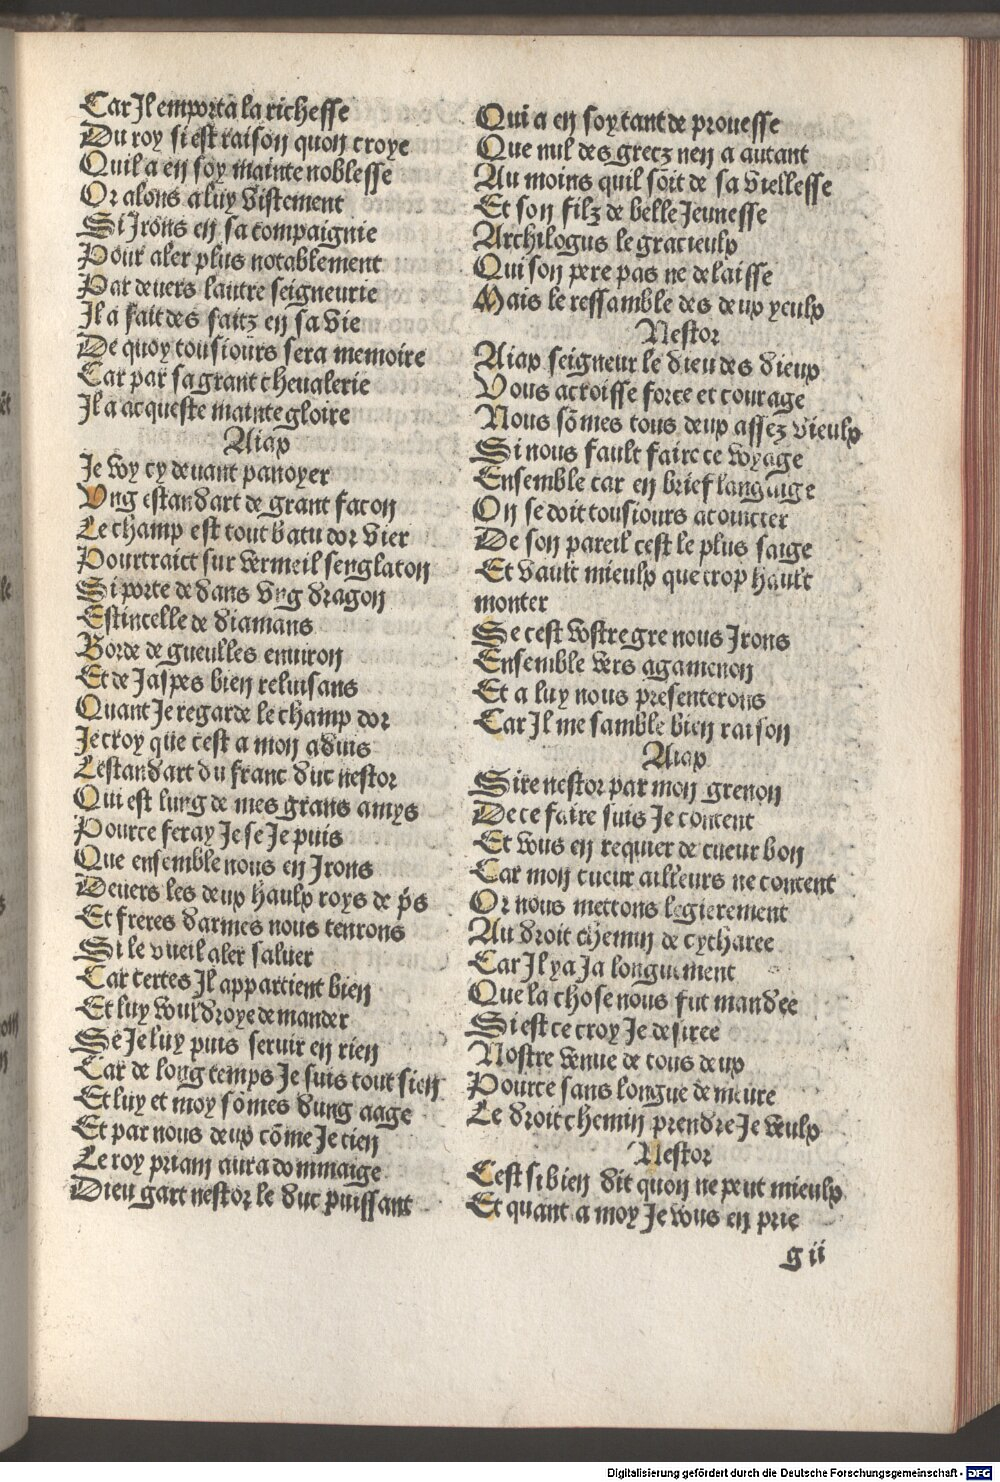 Car Jl emporta la richesse
Du roy si est raison quon croye
Quil a en soy mainte noblesse
Or alons a luy vistement
Si Jrons en sa compaignie
Pour aler plus notablement
Par deuers lautre seigneurie
Jl a fait des faitz en sa vie
De quoy tousiours sera memoire
Car par sa grant cheualerie
Jl a acqueste mainte gloire
Aiax
Je voy cy deuant panoyer
Vng estandart de grant facon
Le champ est tout batu dor vier
Pourtraict sur vermeil senglaton
Si porte dedans vng dragon
Estincelle de diamans
Borde de gueulles enuiron
Et de Jaspes bien reluisans
Quant Je regarde le champ dor
Je croy que cest a mon aduis
Lestandart du franc duc nestor
Qui est lung de mes grans amys
Pource feray Je se Je puis
Que ensemble nous en Jrons
Deuers les deux haulx roys de p̃s
Et freres darmes nous tenrons
Si le vueil aler saluer
Car certes Jl appartient bien
Et luy vouldroye demander
Se Je luy puis seruir en rien
Car de long temps Je suis tout sien
Et luy et moy sõmes dung aage
Et par nous deux cõme Je tien
Le roy priam aura dommaige
Dieu gart nestor le duc puissant
Qui a en soy tant de prouesse
Que nul des grecz nen a autant
Au moins quil soit de sa viellesse
Et son filz de belle Jeunesse
Archilogus le gracieulx
Qui son pere pas ne delaisse
Mais le ressamble des deux yeulx
Nestor
Aiax seigneur le dieu des dieux
Vous acroisse force et courage
Nous sõmes tous deux assez vieulx
Si nous fault faire ce voyage
Ensemble car en brief languige
On se doit tousiours acointer
De son pareil cest le plus saige
Et vault mieulx que trop hault
monter
Se cest vostre gre nous Jrons
Ensemble vers agamenon
Et a luy nous presenterons
Car Jl me samble bien raison
Aiax
Sire nestor par mon grenon
De ce faire suis Je content
Et vous en requier de cueur bon
Car mon cueur ailleurs ne content
Or nous mettons legierement
Au droit chemin de cytharee
Car Jl ya Ja longuement
Que la chose nous fut mandee
Si est ce croy Je desiree
Nostre venue de tous deux
Pource sans longue demeure
Le droit chemin prendre Je veulx
Nestor
Cest si bien dit quon ne peut mieulx
Et quant a moy Je vous en prie
g ii
Digitalisierung gefördert durch die Deutsche Forschungsgemeinschaft - DFG